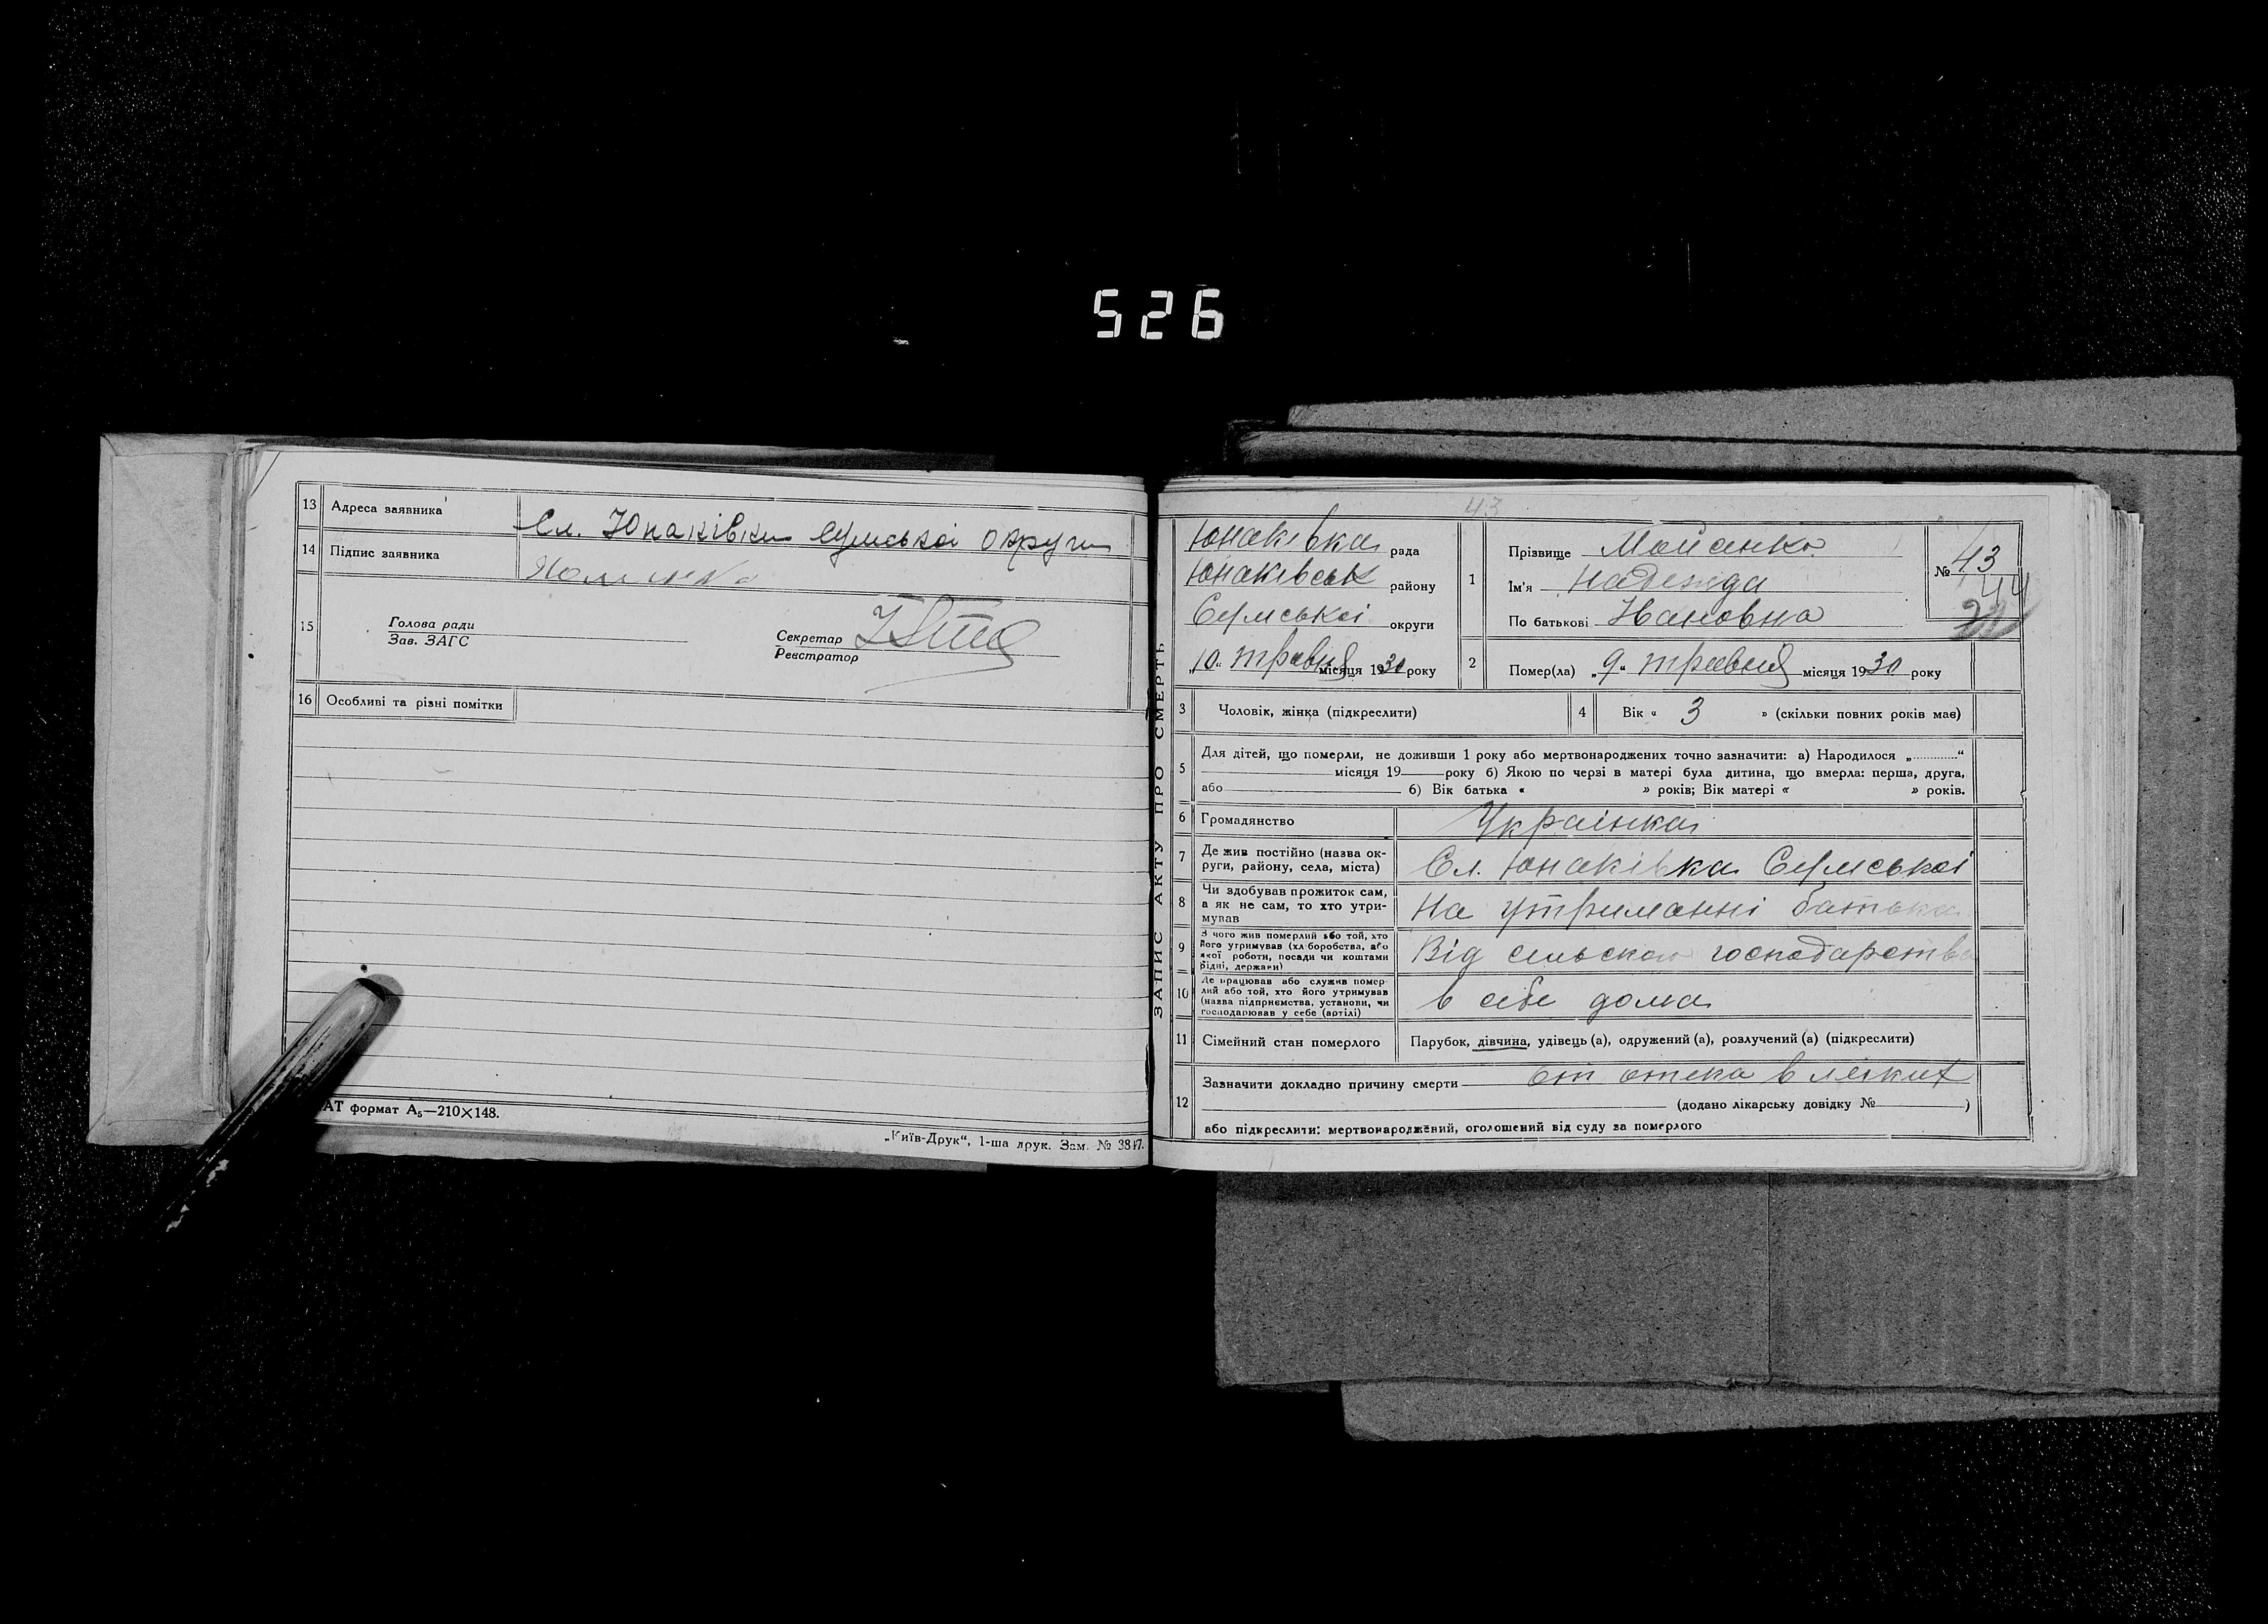 526
13 Адреса заявника Сл. Юнаківки Сумської округи
14 Підпис заявника
15 Голова ради
Зав. ЗАГС
Секретар
Реєстратор
16 Особливі та різні помітки
АТ формат А5—210×148.
„Київ-Друк“, 1-ша друк. Зам. № 3847.
ЗАПИС АКТУ ПРО СМЕРТЬ
43
Юнаківка рада
Юнаківськ району
Сумської округи
„10“ травня місяця 1930 року
1 Прізвище
Ім'я Надежда
По батькові Ивановна
№ 43
44
2 Помер(ла) „9“ травня місяця 1930 року
3 Чоловік, жінка (підкреслити)
4 Вік « 3 » (скільки повних років має)
5 Для дітей, що померли, не доживши 1 року або мертвонароджених точно зазначити: а) Народилося „............“
місяця 19 року б) Якою по черзі в матері була дитина, що вмерла: перша, друга,
або б) Вік батька « » років; Вік матері « » років.
6 Громадянство Українка
7 Де жив постійно (назва ок-
руги, району, села, міста) Сл. Юнаківка Сумської
8 Чи здобував прожиток сам,
а як не сам, то хто утри-
мував На утриманні батька
9 З чого жив померлий або той, хто
його утримував (хліборобства, або
якої роботи, посади чи коштами
рідні, держави) Від сільского господарства
10 Де працював або служив помер-
лий або той, хто його утримував
(назва підприємства, установи, чи
господарював у себе (артілі) в себе дома
11 Сімейний стан померлого Парубок, дівчина, удівець (а), одружений (а), розлучений (а) (підкреслити)
12 Зазначити докладно причину смерти от отека в легких
(додано лікарську довідку № )
або підкреслити: мертвонароджений, оголошений від суду за померлого